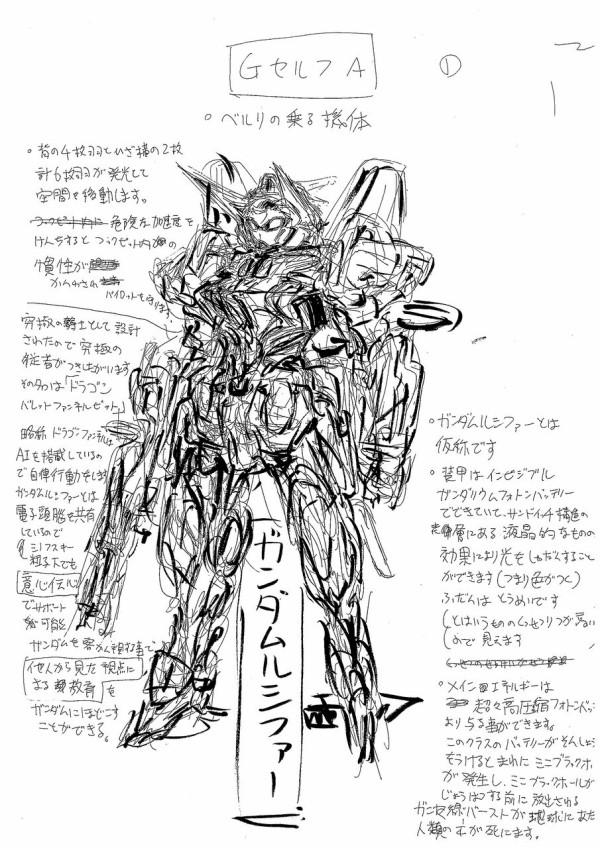 GセルフA
①
。ベルリの乗る機体
。背の4枚羽とひざ横の2枚
計6枚羽が発光して
空間を移動します。
危険な加速度を
けんちするとコックピット内の
慣性が
かんわされ
パイロットを守ります
究極の騎士として設計
されたので究極の
従者がつきしたがいます
その名は「ドラゴン
バレットファンネルビット」
略称ドラゴンファンネルは
AIを搭載しているの
で自律行動をします
ガンダムルシファーとは
電子頭脳を共有
しているので
ミノフスキー
粒子下でも
意心伝心
でサポート
可能
ガンダムを客から見た事で
他人から見た視点に
よる 教育を
ガンダムにほどこす
ことができる。
ガンダムルシファー
。ガンダムルシファーとは
仮称です
。装甲はインビジブル
ガンダリウムフォトンバッテリー
でできていて、サンドイッチ構造の
層にある液晶的なものの
効果により光をしゃだんすること
ができます(つまり色がつく)
ふだんはとうめいです
(とはいうもののくっせつりつが高い
ので見えます
。メインエネルギーは
超々高圧縮フォトンバッ
より与る事ができます。
このクラスのバッテリーがそんしょう
をうけるとまれにミニブラックホ
が発生し、ミニブラックホールが
じょうはつする前に放出される
ガンマ線バーストが地球にあた
人類の が死にます。